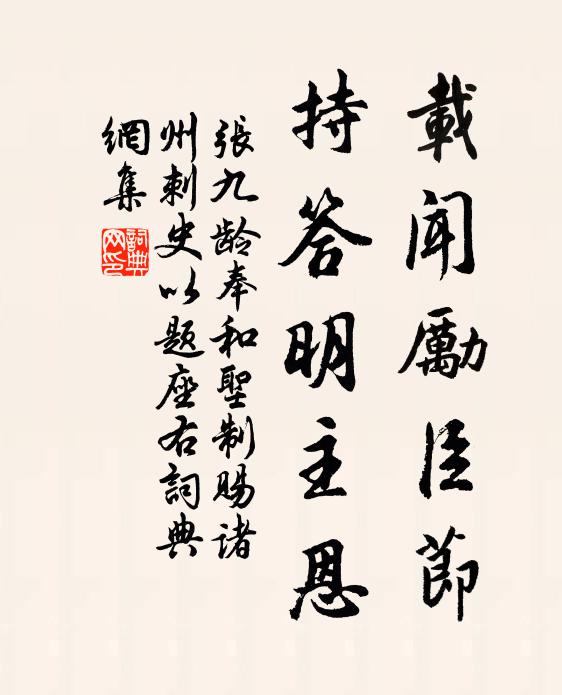 載聞勵臣節
持答明主恩
張九龄奉和聖制賜諸
州刺史以题座右詞典
網集
詞典网印